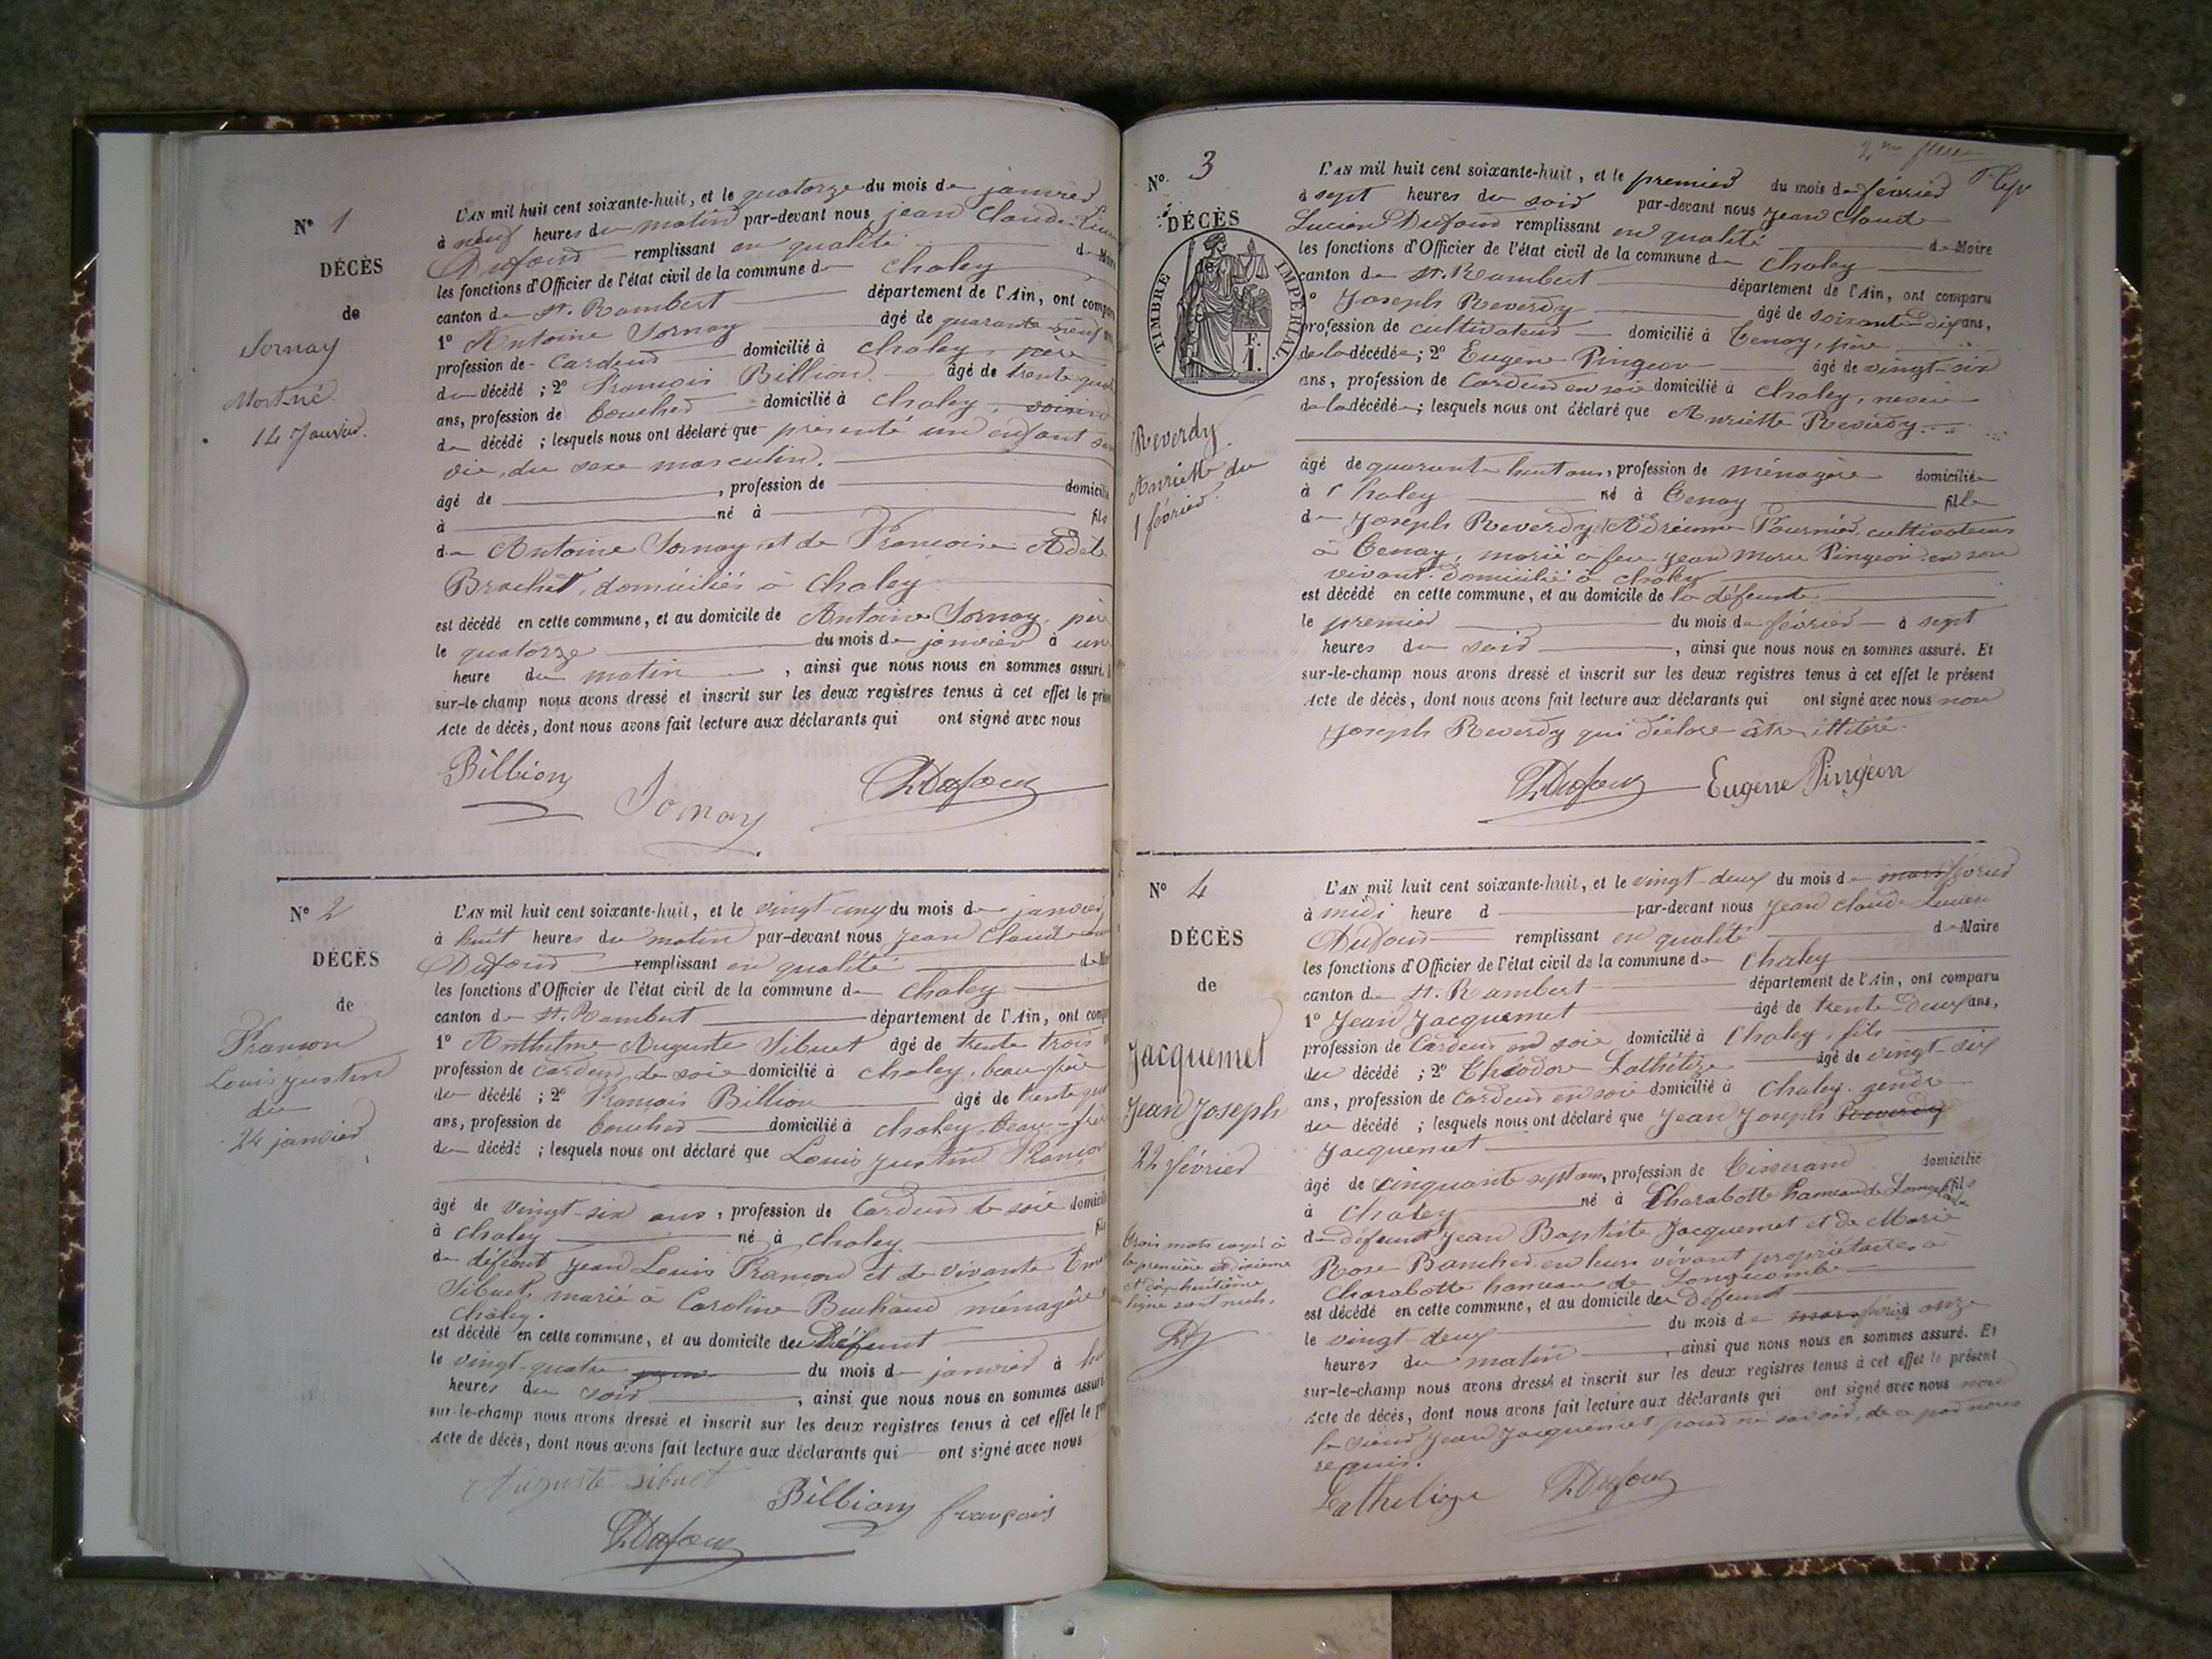 N° 1
DÉCÈS
de
Sornay
Mort-né
14 Janvier.
L'AN mil huit cent soixante-huit, et le quatorze du mois de janvier
à neuf heures du matin par-devant nous jean Claude
Dufour remplissant en qualité
les fonctions d'Officier de l'état civil de la commune de Chaley
canton de St. Rambert département de l'Ain, ont
1° Antoine Sornay âgé de quarante-neuf
profession de Cardeur domicilié à Chaley, père
du décédé ; 2° François Billion âgé de trente
ans, profession de boucher domicilié à Chaley, voisin
du décédé ; lesquels nous ont déclaré que présenté un enfant
vie, du sexe masculin.
âgé de , profession de
à né à fils
de Antoine Sornay et de Françoise Adèle
Brachet, domiciliés à Chaley
est décédé en cette commune, et au domicile de Antoine Sornay,
le quatorze du mois de janvier à
heure du matin , ainsi que nous nous en sommes assuré.
sur-le-champ nous avons dressé et inscrit sur les deux registres tenus à cet effet le
Acte de décès, dont nous avons fait lecture aux déclarants qui ont signé avec nous
Billion Sornay LDufour
N° 2
DÉCÈS
de
Francon
Louis justin
du
24 janvier
L'AN mil huit cent soixante-huit, et le vingt-cinq du mois de janvier
à huit heures du matin par-devant nous jean Claude
Dufour remplissant en qualité
les fonctions d'Officier de l'état civil de la commune de Chaley
canton de St. Rambert département de l'Ain, ont
1° Anthelme Auguste Sibuet âgé de trente trois
profession de Cardeur de soie domicilié à Chaley, beau frère
du décédé ; 2° François Billion âgé de trente
ans, profession de boucher domicilié à Chaley, beau-
du décédé ; lesquels nous ont déclaré que Louis justin
âgé de vingt-six ans, profession de Cardeur de soie
à Chaley né à Chaley
de défunt jean Louis Francon et de vivante
Sibuet, marié à Caroline Buchard ménagère
Chaley.
est décédé en cette commune, et au domicile du Défunt
le vingt-quatre du mois de janvier à
heures du soir , ainsi que nous nous en sommes
sur-le-champ nous avons dressé et inscrit sur les deux registres tenus à cet effet le
Acte de décès, dont nous avons fait lecture aux déclarants qui ont signé avec nous
Auguste Sibuet Billion françois
LDufour
N°. 3
DÉCÈS
TIMBRE IMPÉRIAL.
F.
1.
Reverdy
Anriette du
1 février
L'AN mil huit cent soixante-huit, et le premier du mois de février
à sept heures du soir par-devant nous Jean Claude
Lucien Dufour remplissant en qualité de Maire
les fonctions d'Officier de l'état civil de la commune de Chaley
canton de St. Rambert département de l'Ain, ont comparu
Joseph Reverdy âgé de soixante-dix ans,
profession de cultivateur domicilié à Tenay, père
de la décédée ; 2° Eugene Pingeon âgé de vingt-six
ans, profession de Cardeur en soie domicilié à Chaley, neveu
de la décédée ; lesquels nous ont déclaré que Anriette Reverdy
âgé de quarante huit ans, profession de ménagère domiciliée
à Chaley né à Tenay fille
de Joseph Reverdy et Adrienne Fournier, cultivateurs
à Tenay, marié à feu Jean Marie Pingeon en son
vivant domicilié à Chaley
est décédé en cette commune, et au domicile de la défunte
le premier du mois de février à sept
heures du soir , ainsi que nous nous en sommes assuré. Et
sur-le-champ nous avons dressé et inscrit sur les deux registres tenus à cet effet le présent
Acte de décès, dont nous avons fait lecture aux déclarants qui ont signé avec nous non
Joseph Reverdy qui déclare être illitéré.
LDufour Eugène Pingeon
N° 4
DÉCÈS
de
Jacquemet
Jean Joseph
22 février
trois mots rayés à
la première et dixième
et dix huitième
ligne sont nuls.
L'AN mil huit cent soixante-huit, et le vingt-deux du mois de mars février
à midi heure d par-devant nous Jean Claude Lucien
Dufour remplissant en qualité de Maire
les fonctions d'Officier de l'état civil de la commune de Chaley
canton de St. Rambert département de l'Ain, ont comparu
1° Jean Jacquemet âgé de trente-deux ans,
profession de Cardeur en soie domicilié à Chaley, fils
du décédé ; 2° Théodore Lathélize âgé de vingt-six
ans, profession de Cardeur en soie domicilié à Chaley, gendre
du décédé ; lesquels nous ont déclaré que Jean Joseph Reverdy
Jacquemet
âgé de cinquante sept ans, profession de Tisserand domicilié
à Chaley né à Charabotte hameau de fils
de défunt Jean Baptiste Jacquemet et de Marie
Rose Bancher, en leurs vivant propriétaires à
Charabotte hameau de Longecombe
est décédé en cette commune, et au domicile du Défunt
le vingt-deux du mois de mars février à onze
heures du matin , ainsi que nous nous en sommes assuré. Et
sur-le-champ nous avons dressé et inscrit sur les deux registres tenus à cet effet le présent
Acte de décès, dont nous avons fait lecture aux déclarants qui ont signé avec nous non
le sieur Jean Jacquemet pour ne savoir, de ce par nous
requis.
Lathelize LDufour